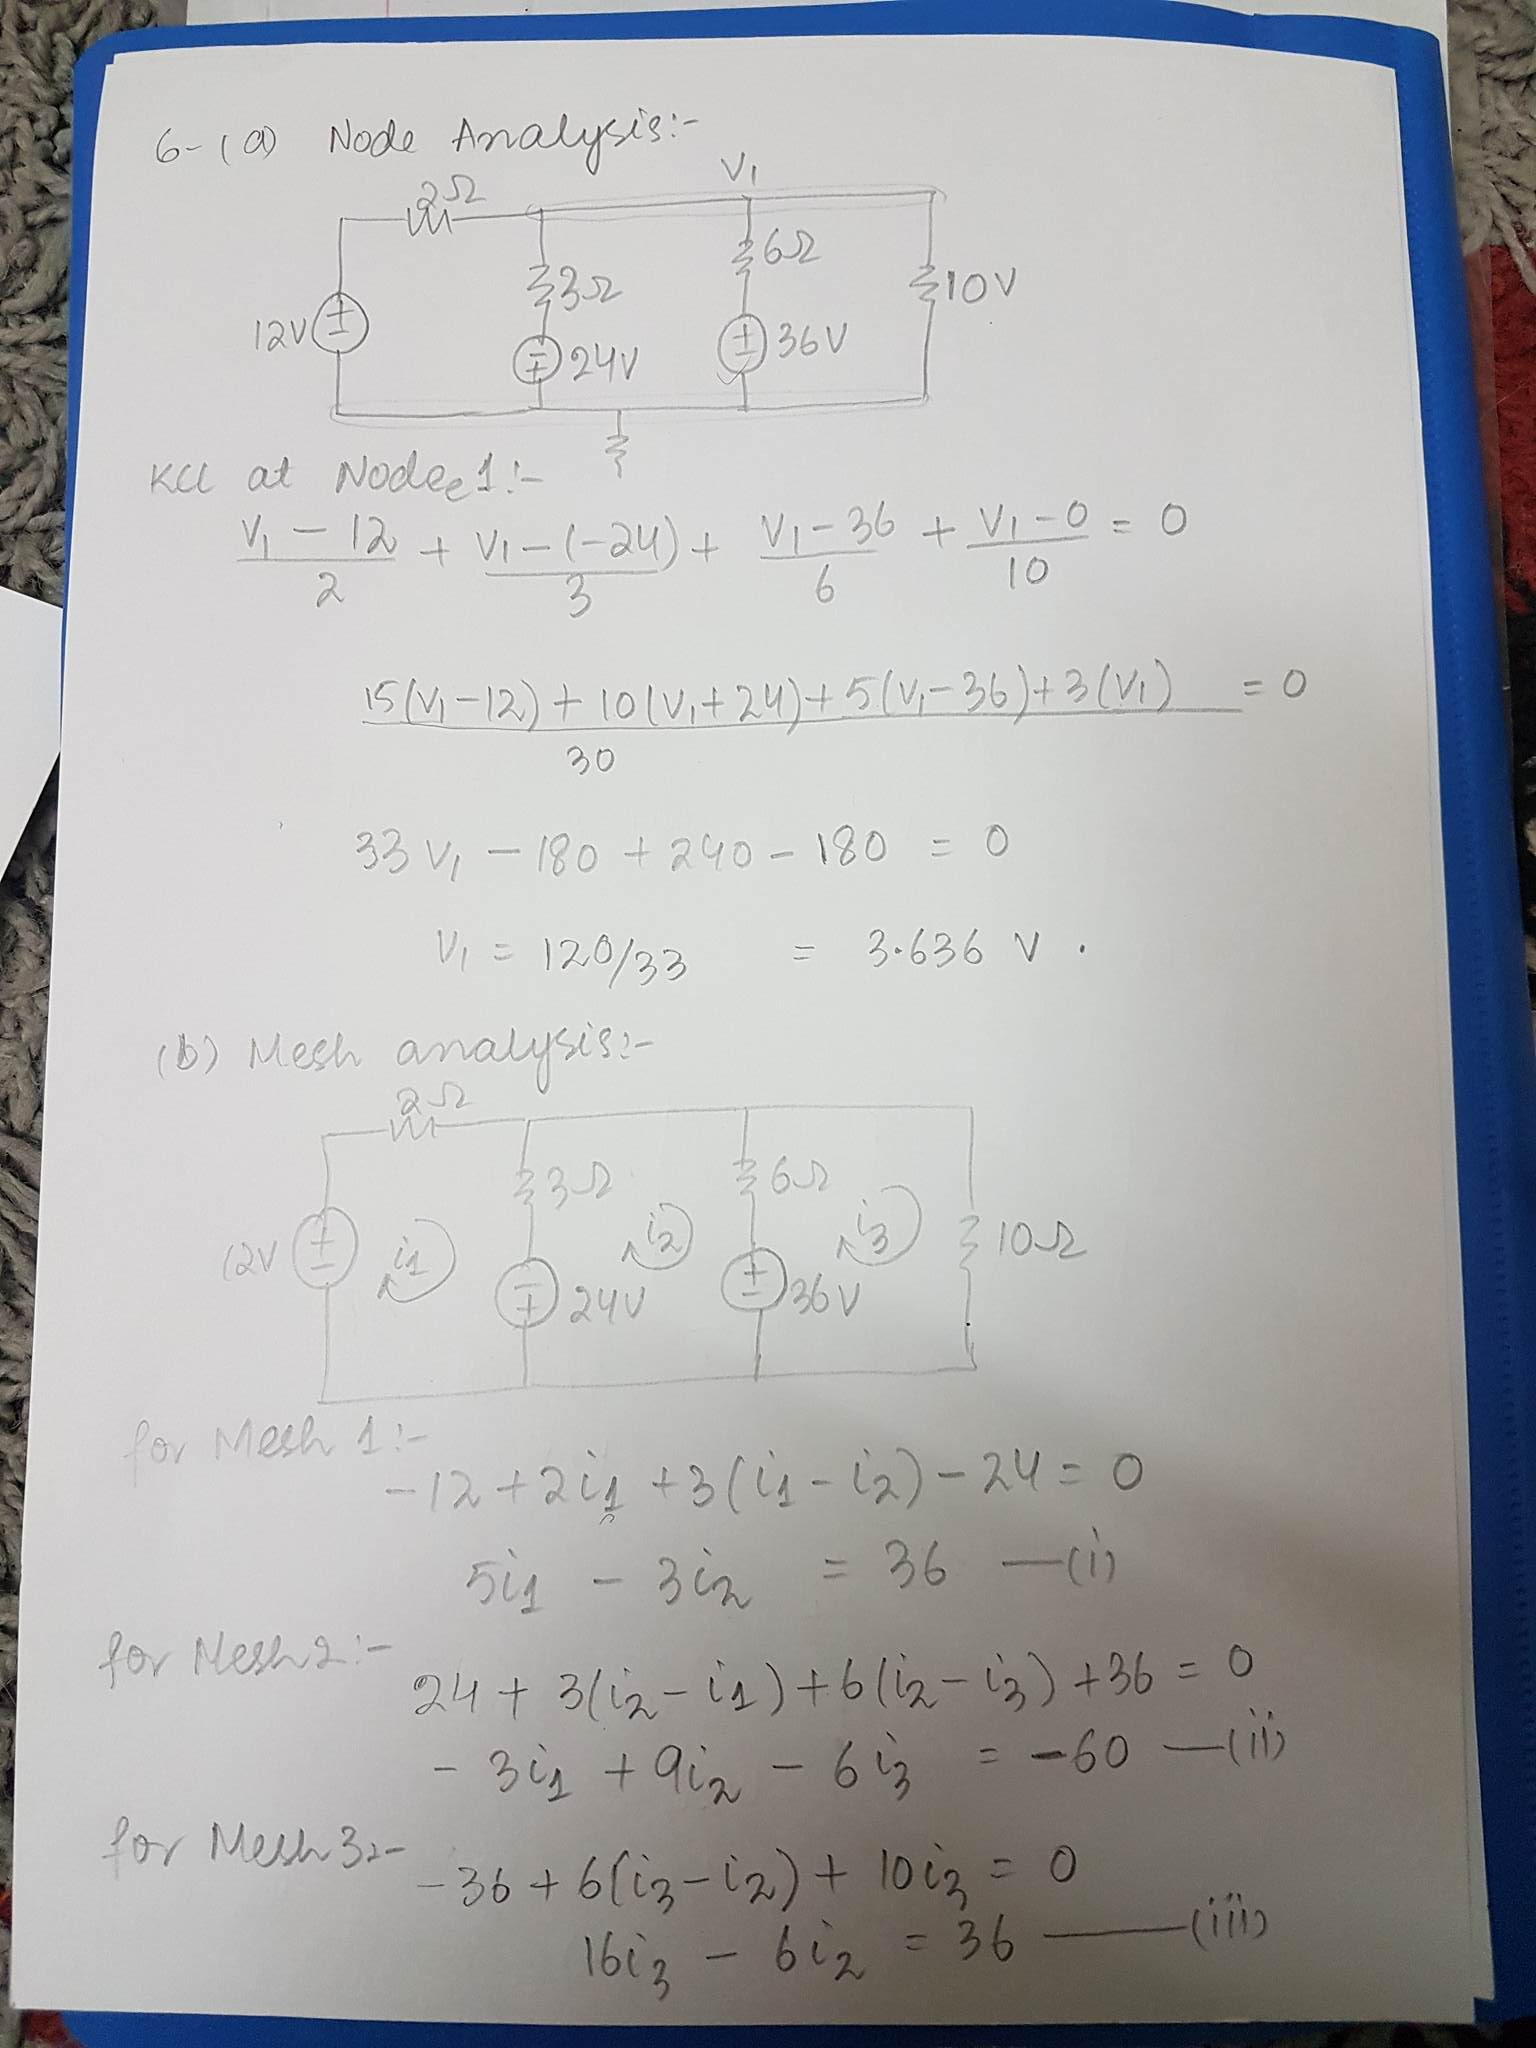 6-(a) Node Analysis:-
V1
2Ω
3Ω
6Ω
10V
12V
24V
36V
KCL at Nodee1:-
V1 - 12 / 2 + V1 - (-24) / 3 + V1 - 36 / 6 + V1 - 0 / 10 = 0
15(V1-12) + 10(V1+24) + 5(V1-36) + 3(V1) / 30 = 0
33V1 - 180 + 240 - 180 = 0
V1 = 120/33 = 3.636 V.
(b) Mesh analysis:-
2Ω
3Ω
6Ω
12V
i1
i2
i3
10Ω
24V
36V
for Mesh 1:-
-12 + 2i1 + 3(i1 - i2) - 24 = 0
5i1 - 3i2 = 36 —(i)
for Mesh2:-
24 + 3(i2 - i1) + 6(i2 - i3) + 36 = 0
- 3i1 + 9i2 - 6i3 = -60 —(ii)
for Mesh3:-
-36 + 6(i3 - i2) + 10i3 = 0
16i3 - 6i2 = 36 —(iii)